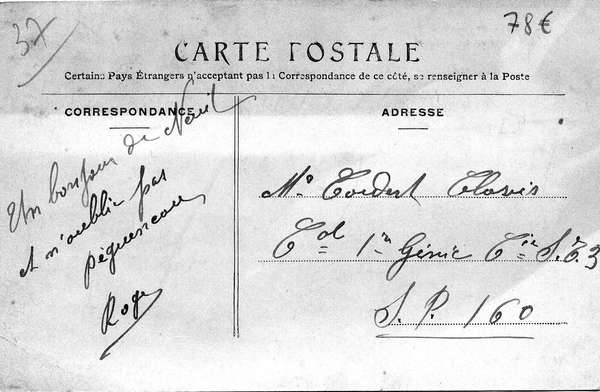 37
78€
CARTE POSTALE
Certains Pays Étrangers n'acceptant pas la Correspondance de ce côté, se renseigner à la Poste
CORRESPONDANCE
ADRESSE
Un bonjour de
et n'oublie pas
Roger
Mr Clovis
Cal 1r Génie Cie S.E3
S. P. 160